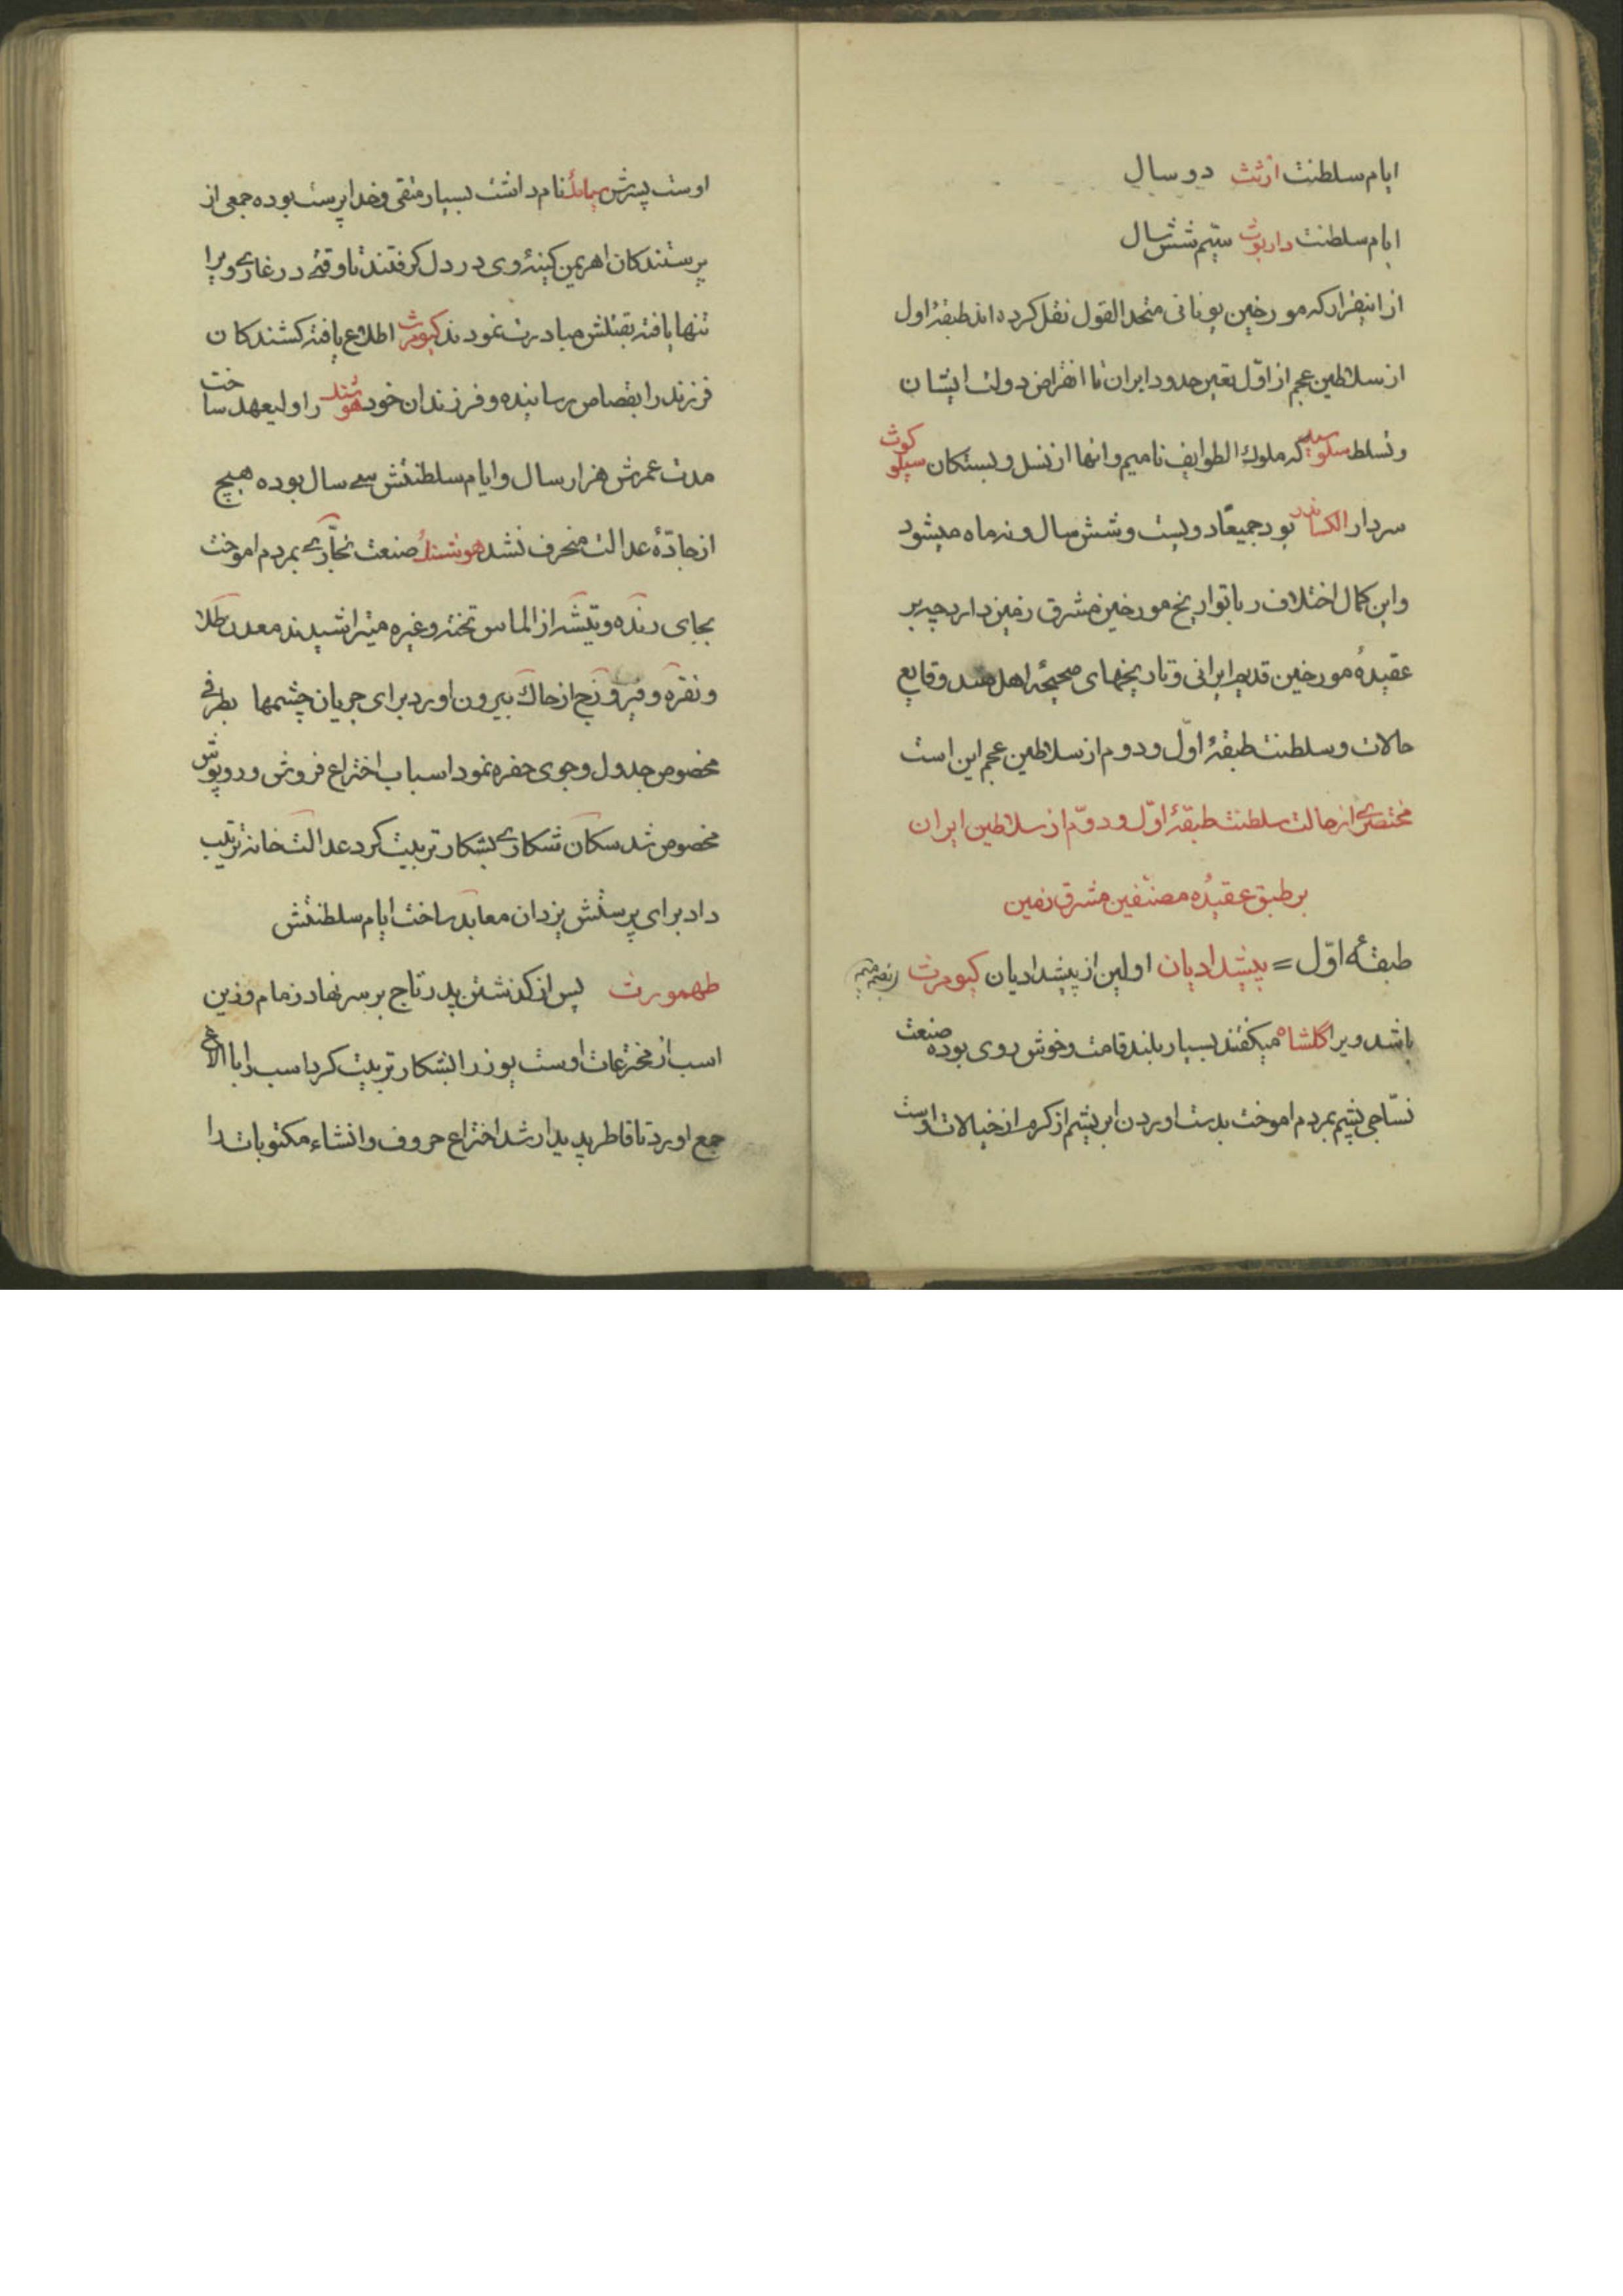 ایام سلطنت ارثث دو سال
ایام سلطنت داریوث سیّم شش سال
از اینقرار که مورخین یونانی متحد القول نقل کرده اند طبقهٔ اول
از سلاطین عجم از اوّل تعین حدود ایران تا انقراض دولت ایشان
و تسلط که ملوك الطوایف نامیم و انها از نسل و بستکان
سردار بود جمیعًا دویست و شش سال و نه ماه میشود
و این کمال اختلاف را با تواریخ مورخین مشرق زمین دارد چه بر
عقیدهٔ مورخین قدیم ایرانی و تاریخهای صحیحهٔ اهل هند وقایع
حالات و سلطنت طبقهٔ اوّل و دوم از سلاطین عجم این است
مختصری از حالت سلطنت طبقهٔ اوّل و دوّم از سلاطین ایران
بر طبق عقیدُه مصنّفین مشرق زمین
طبقهٔ اوّل = پیشدادیان اولین از پیشدادیان کیومرث
باشد ویرا گلشاه میکفتند بسیار بلند قامت و خوش روی بوده صنعت
نسّاجی پشیم بمردم اموخت بدست اوردن ابریشیم از کرم از خیالات اوست
اوست پسرش نام داشت بسیار متقی و خدا پرست بوده جمعی از
پرستندکان اهریمن کینهٔ وی در دل کرفتند تا وقتی در غاری ویرا
تنها یافته بقتلش مبادرت نمودند کیومرث اطلاع یافته کشندکان
فرزند را بقصاص رسانیده و فرزندان خود هوشنك را ولیعهد ساخت
مدت عمرش هزار سال و ایام سلطنتش سی سال بوده هیچ
از جادّهٔ عدالت منحرف نشد هوشنك صنعت نجّاری بمردم اموخت
بجای رنده و تیشه از الماس تخته و غیره میتراشیدند معدن طلا
و نقره و فیروزج از خاك بیرون اورد برای جریان چشمها بطرفی
مخصوص جدول و جوی حفره نمود اسباب اختراع فروش و روپوش
مخصوص شد سکان شکاری بشکار تربیت کرد عدالت خانه ترتیب
داد برای پرستش یزدان معابد ساخت ایام سلطنتش
طهمورث پس از کذشتن پدر تاج بر سر نهاد زمام و زین
اسب از مخترعات اوست یوز را بشکار تربیت کرد اسب را با الاغ
جمع اورد تا قاطر پدیدار شد اختراع حروف و انشاء مکتوبات را